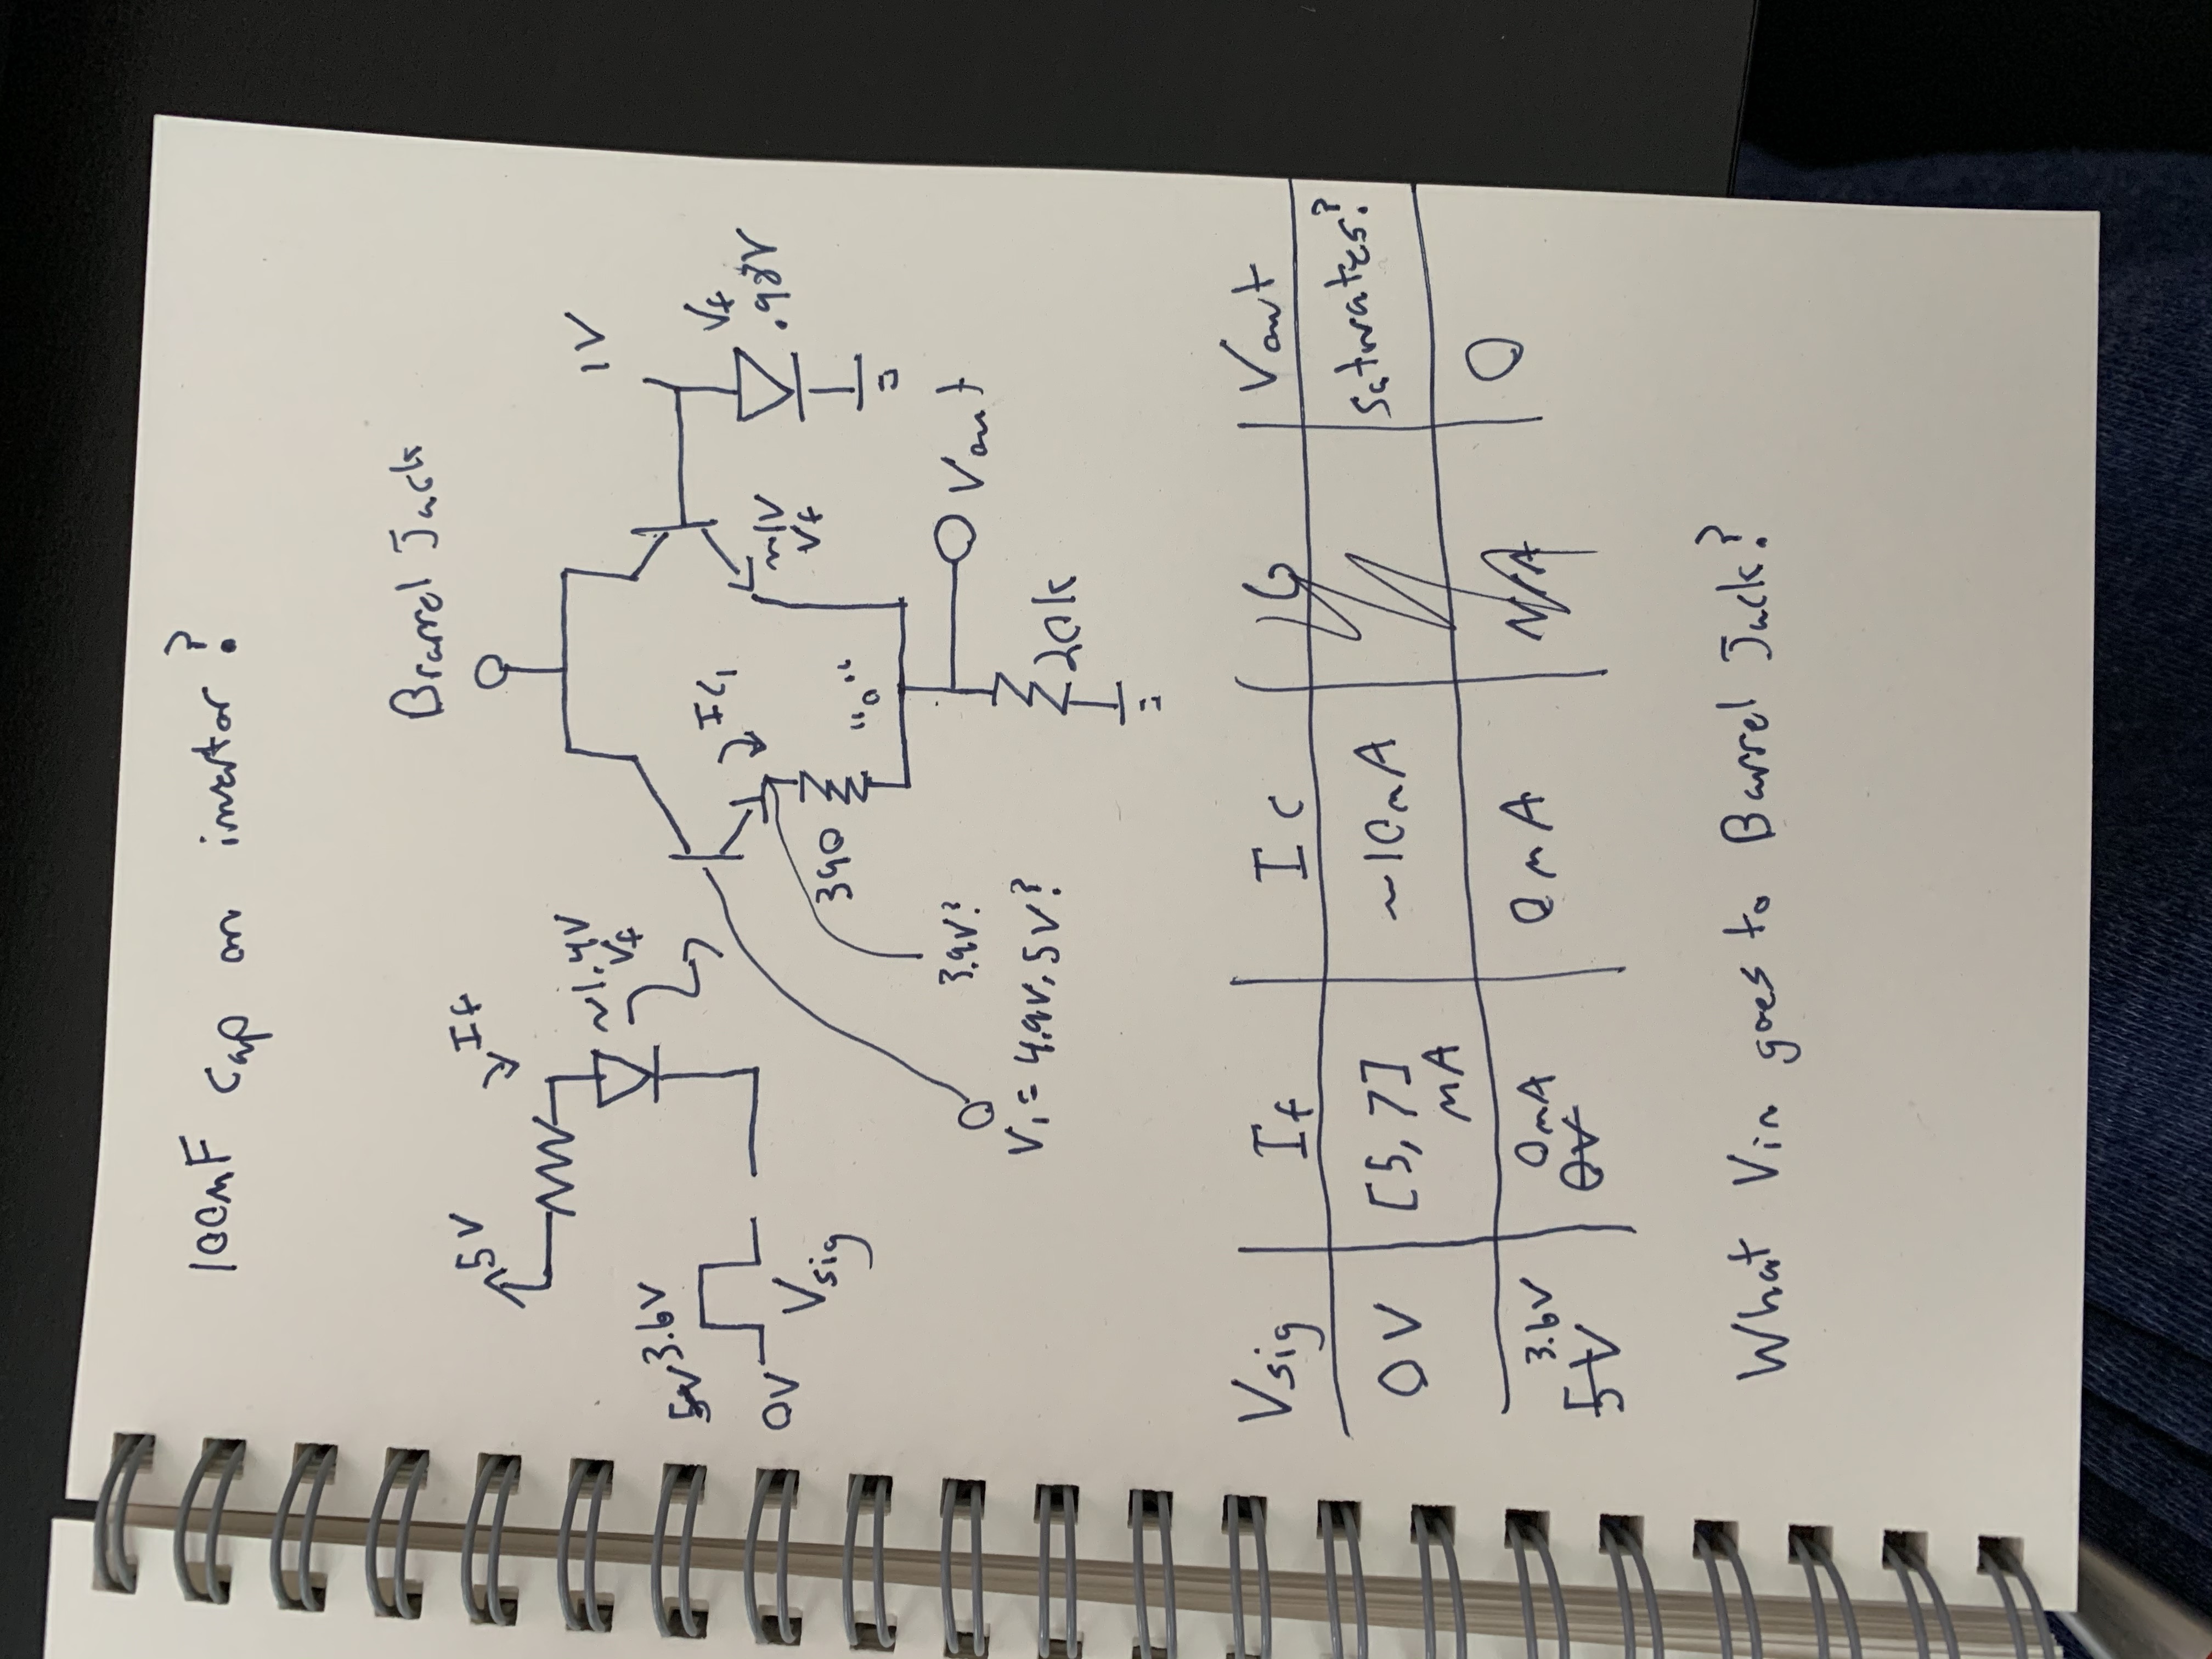 100mF Cap on invertor?
Brarrel Jack
5V
If
~1.4V
Vf
1V
5V 3.6V
0V
Vsig
IC1
Vf
.98V
~1V
Vf
390
"0"
3.9V?
Vout
V1 = 4.9V, 5V?
20k
Vsig If IC G Vout
0V [5,7] mA ~10mA Saturates?
3.6V 0mA 0mA N/A 0
5V 0V
What Vin goes to Barrel Jack?